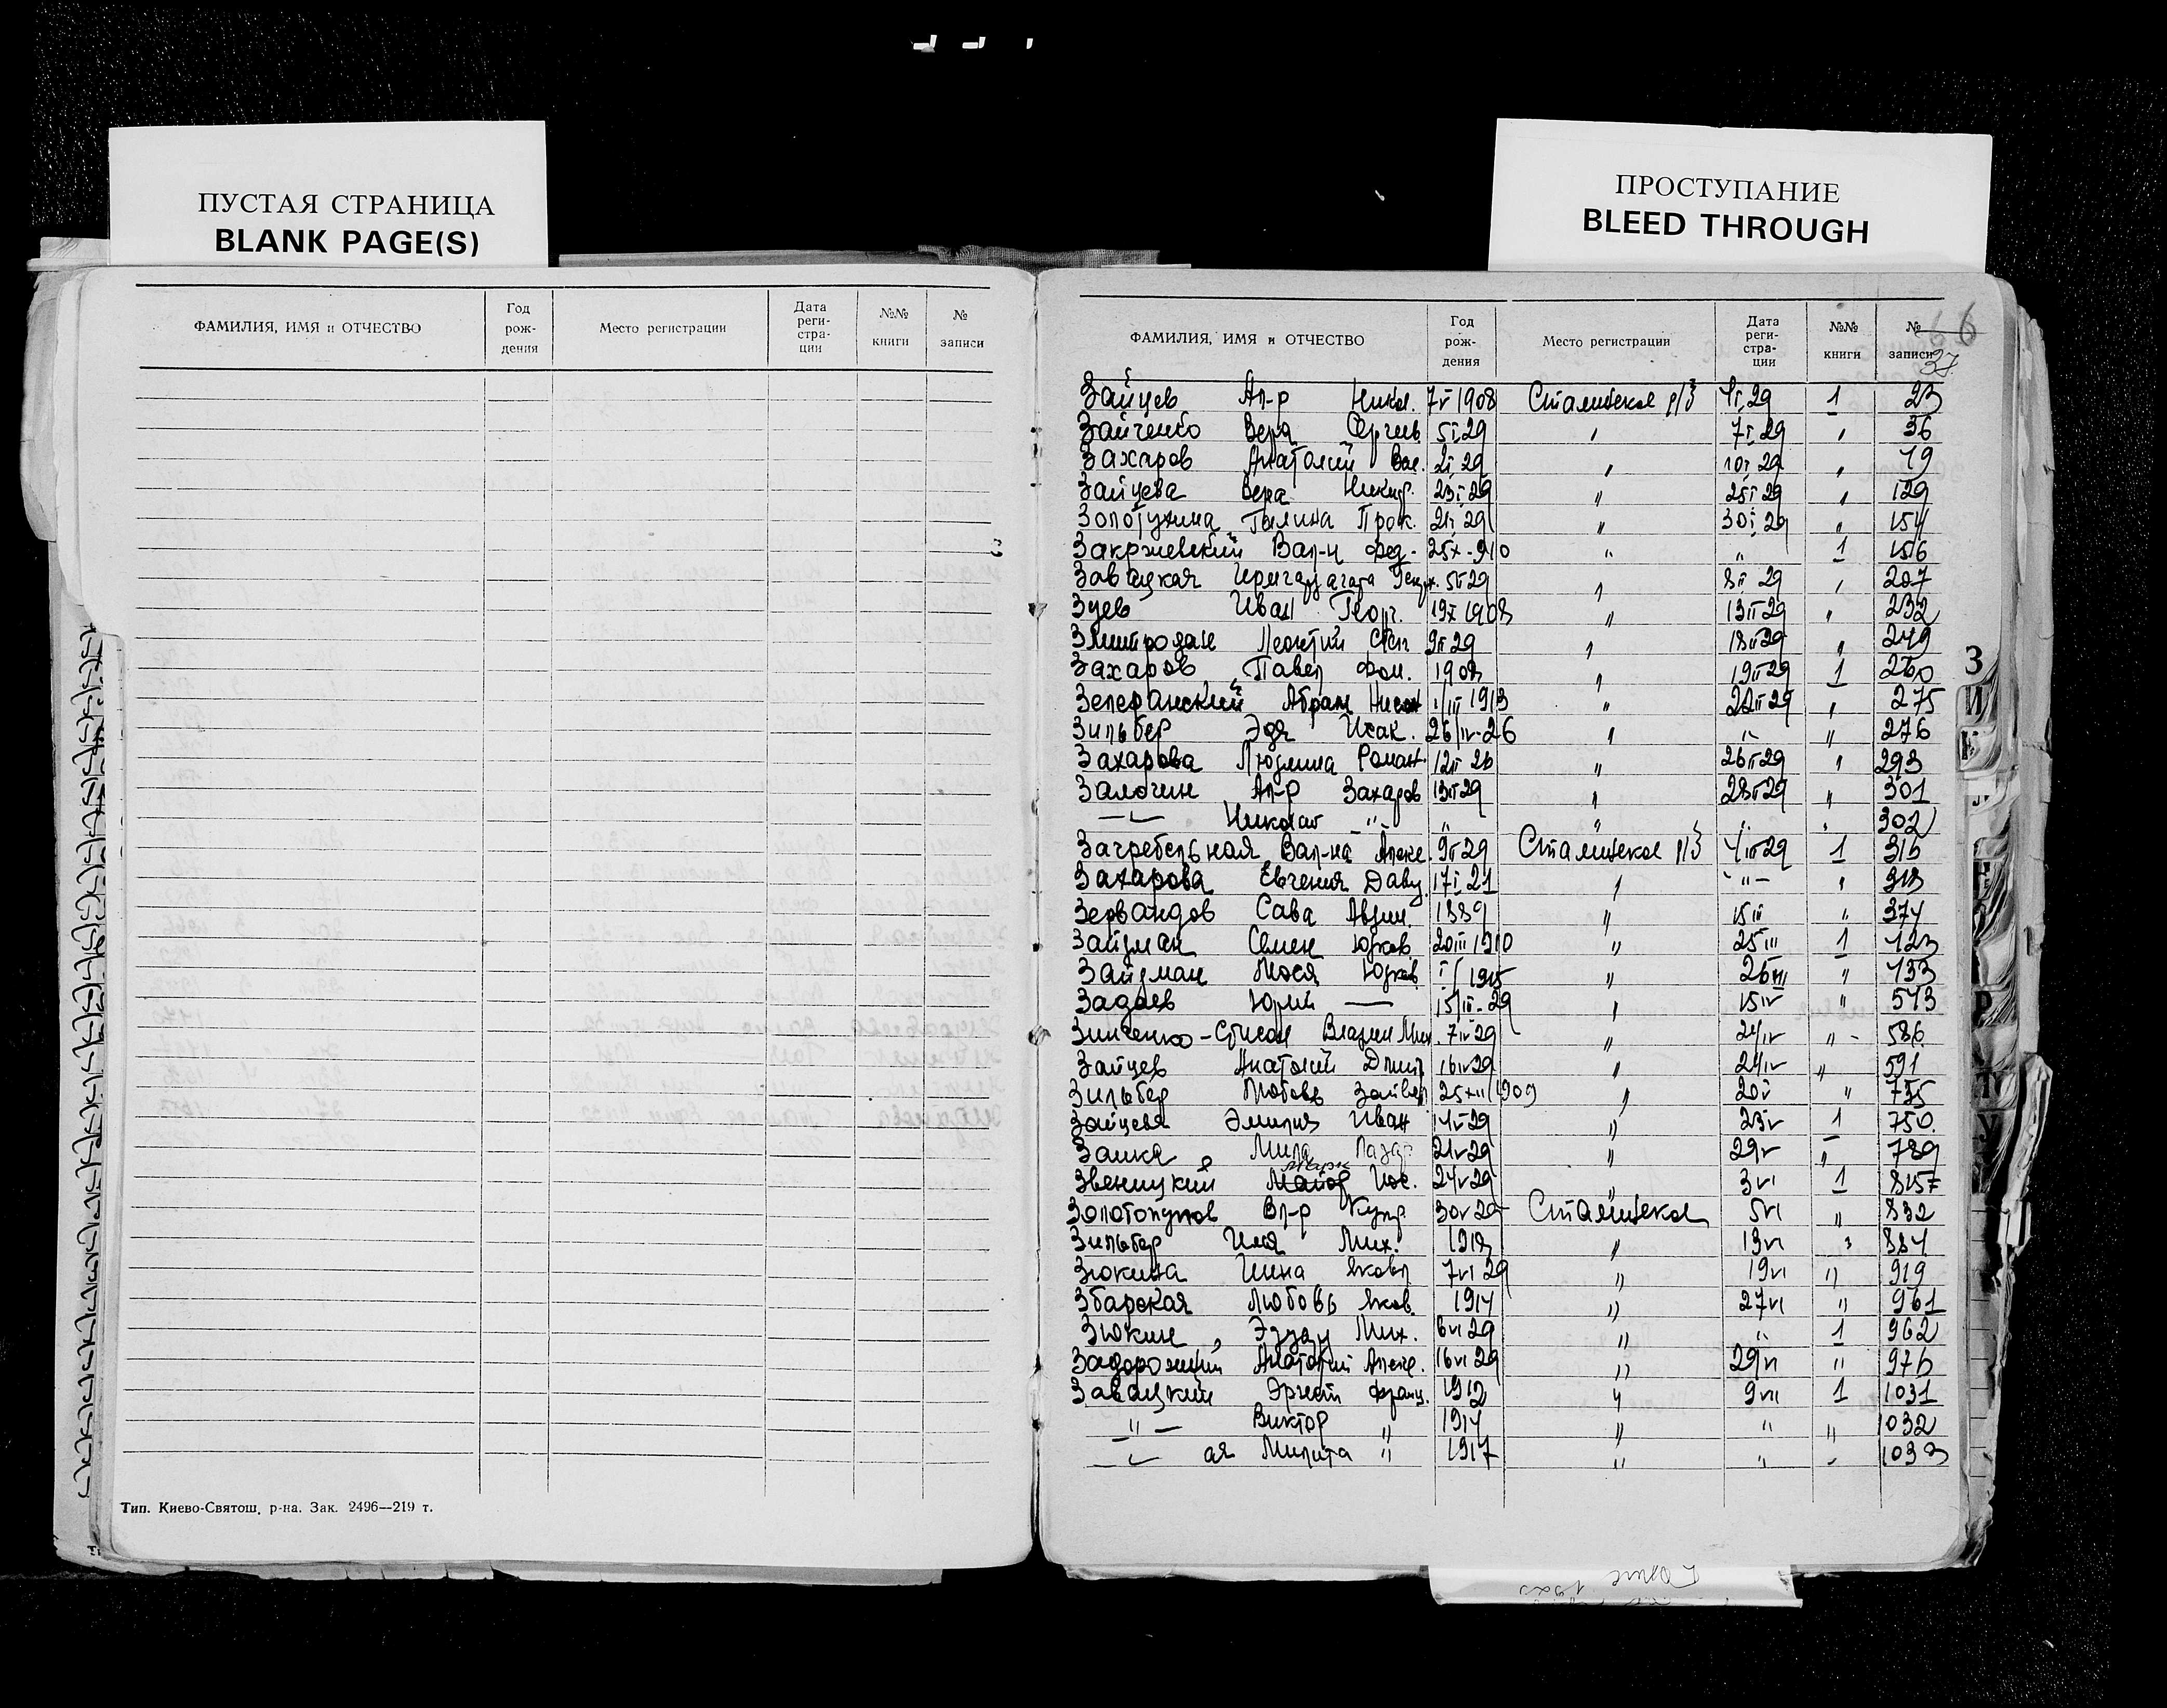 ПУСТАЯ СТРАНИЦА
BLANK PAGE(S)
ПРОСТУПАНИЕ
BLEED THROUGH
ФАМИЛИЯ, ИМЯ и ОТЧЕСТВО Год рож-дения Место регистрации Дата реги-стра-ции №№ книги № записи
Тип. Киево-Святош. р-на. Зак. 2496—219 т.
ФАМИЛИЯ, ИМЯ и ОТЧЕСТВО Год рож-дения Место регистрации Дата реги-стра-ции №№ книги № записи
37
Зайцев Ал-р Никол. 7 V 1908 Сталинское р/З I 29 1 23
Зайченко Вера Сергеев 5 I 29 " 7 I 29 " 36
Захаров Анатолий Вас. 2 I 29 " 10 I 29 "
Зайцева Вера Никиф. 23 I 29 " 25 I 29 " 129
Золотухина Галина Прок. 21 I 29 " 30 I 29 " 154
Закржевский Вал-н Фед. 25 X 910 " " 1 156
Завацкая 5 II 29 " 8 II 29 " 207
Зуев Иван Георг. 19 X 1908 " 13 II 29 " 232
Леонтий Степ 9 II 29 " 18 II 29 " 249
Захаров Павел Фом. 1908 " 19 II 29 1 260
Зелеранский Абрам 1/III 1913 " 22 II 29 " 275
Зильбер Эдя Исак. 26/IV-26 " " " 276
Захарова Людмила Роман. 12 II 26 " 26 II 29 " 293
Залогин Ал-р Захаров 13 II 29 " 28 II 29 " 301
—"— Николай —"— " " " " 302
Загребельная Вал-на Алекс. 9 II 29 Сталинское р/З 4 III 29 1 316
Захарова Евгения Давид. 17 I 21 " —"— " 318
Зервандов Сава 1889 " 15 III " 374
Зайдман Семен Юдков. 20 III 1910 " 25 III 1 423
Зайдман Мося Юдков I/1915 " 26 III " 433
Задоев Юрий — 15/III-29 " 15 IV " 543
Зинченко- Мих. 7 IV 29 " 24 IV " 586
Зайцев Анатолий Дмитр 16 IV 29 " 24 IV " 591
Зильбер Любовь 25 XII 1909 " 20 V " 735
Зайцева Эмилия Иван 14 V 29 " 23 V 1 750
Заика Мила Лазар 21 V 29 " 29 V " 789
Звеницкий Марк Иос. 24 V 29 " 3 VI 1 815
Вл-р Купр 30 V 29 Сталинское 5 VI " 832
Зильбер Илья Мих. 1913 " 13 VI " 884
Зюкина Нина Яковл 7 VI 29 " 19 VI " 919
Збарская Любовь Яков. 1914 " 27 VI " 961
Зюкин Эдуард Мих. 6 VI 29 " " 1 962
Задорожный Анатолий Алекс. 16 VI 29 " 29 VI " 976
Завацкий Эрнест Франц. 1912 " 9 VII 1 1031
—"— Виктор " 1914 " " " 1032
—"— ая Милита " 1917 " " " 1033
З
И
К
Р
Т
У